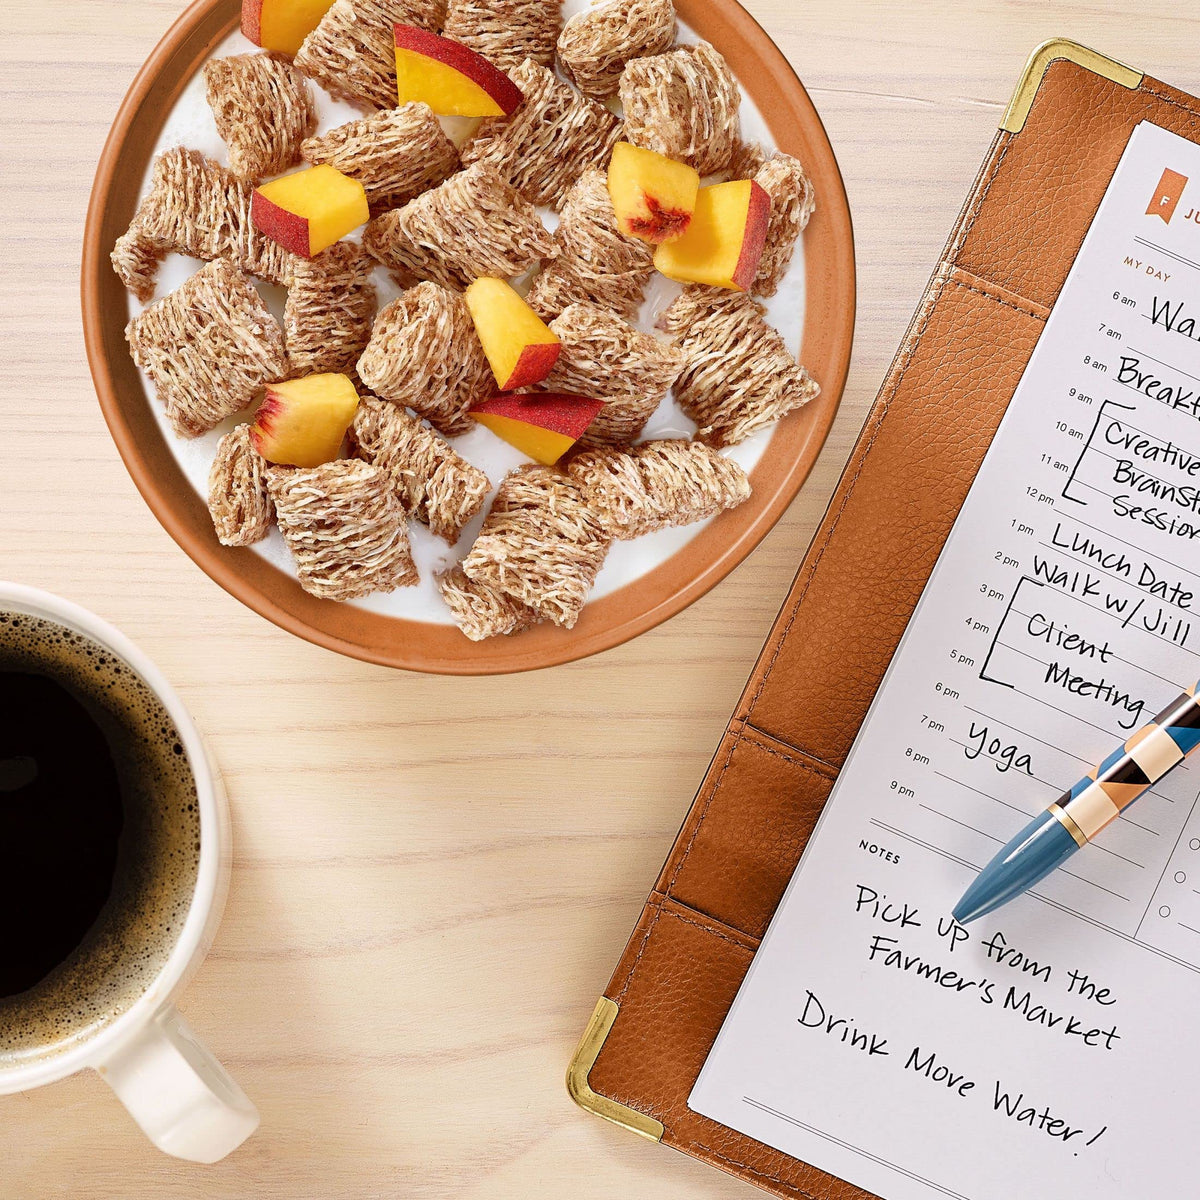 F
MY DAY
6 am
7 am
8 am
9 am
10 am Creative
11 am
12 pm Session
1 pm Lunch Date
2 pm Walk w/ Jill
3 pm
4 pm Client
5 pm Meeting
6 pm
7 pm Yoga
8 pm
9 pm
NOTES
Pick up from the
Farmer's Market
Drink More Water!